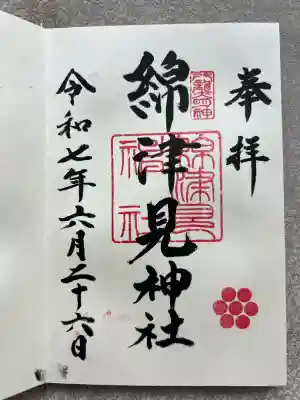 奉拝
綿津見神社
令和七年六月二十六日
綿津見
神社